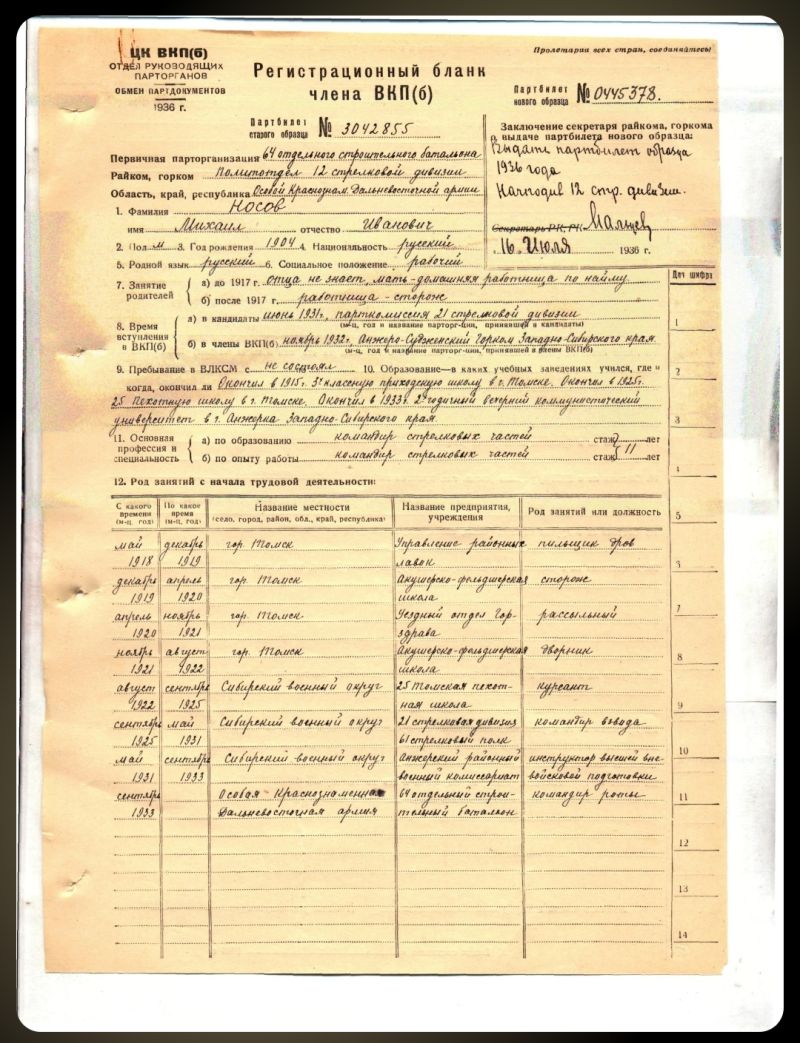 Пролетарии всех стран, соединяйтесь!
ЦК ВКП(б)
ОТДЕЛ РУКОВОДЯЩИХ
ПАРТОРГАНОВ
ОБМЕН ПАРТДОКУМЕНТОВ
1936 г.
Регистрационный бланк
члена ВКП(б)
Партбилет
старого образца № 3042855
Партбилет
нового образца № 0445378.
Заключение секретаря райкома, горкома
о выдаче партбилета нового образца:
Выдать партбилет образца
1936 года
Начподив 12 стр. дивизии.
Секретарь РК, ГК
„16" Июля 1936 г.
Первичная парторганизация 64 отдельного строительного батальона
Райком, горком Политотдел 12 стрелковой дивизии
Область, край, республика Особой Краснознам. Дальневосточной армии
1. Фамилия Носов
имя Михаил отчество Иванович
2. Пол м 3. Год рождения 1904 4. Национальность русский
5. Родной язык русский 6. Социальное положение рабочий
7. Занятие родителей
а) до 1917 г. отца не знает, мать-домашняя работница по найму
б) после 1917 г. работница - сторож
8. Время вступления в ВКП(б)
а) в кандидаты июнь 1931г., парткомиссия 21 стрелковой дивизии
(м-ц, год и название парторг-ции, принявшей в кандидаты)
б) в члены ВКП(б) ноябрь 1932г, Анжеро-Судженский Горком Западно-Сибирского края.
(м-ц, год и название парторг-ции, принявшей в члены ВКП(б)
9. Пребывание в ВЛКСМ с не состоял 10. Образование—в каких учебных заведениях учился, где и
когда, окончил ли Окончил в 1915г. 3х классную приходскую школу в г. Томске. Окончил в 1925г.
25 Пехотную школу в г. Томске. Окончил в 1933г. 2х годичный вечерний коммунистический
университет в г. Анжерка Западно-Сибирского края.
11. Основная профессия и специальность
а) по образованию командир стрелковых частей стаж лет
б) по опыту работы командир стрелковых частей стаж 11 лет
12. Род занятий с начала трудовой деятельности:
С какого времени (м-ц, год) По какое время (м-ц, год) Название местности (село, город, район, обл., край, республика) Название предприятия, учреждения Род занятий или должность
май декабрь гор. Томск Управление районных пильщик дров
1918 1919 лавок
декабрь апрель гор. Томск Акушерско-фельдшерская сторож
1919 1920 школа
апрель ноябрь гор. Томск Уездный отдел Гор- рассыльный
1920 1921 здрава
ноябрь август гор. Томск Акушерско-фельдшерская дворник
1921 1922 школа
август сентябрь Сибирский военный округ 25 Томская пехот- курсант
1922 1925 ная школа
сентябрь май Сибирский военный округ 21 стрелковая дивизия командир взвода
1925 1931 61 стрелковый полк
май сентябрь Сибирский военный округ Анжерский районный инструктор высшей вне-
1931 1933 военный комиссариат войсковой подготовки
сентябрь Особая Краснознаменная 64 отдельный строи- командир роты
1933 Дальневосточная армия тельный баталион
Дет шифра
1
2
3
4
5
6
7
8
9
10
11
12
13
14